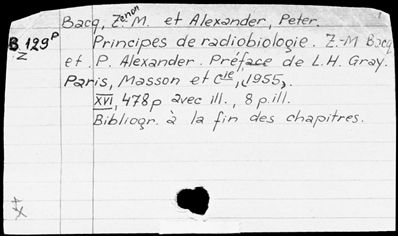 Bacq, Zenon M. et Alexander, Peter.
B 129P
Z
Principes de radiobiologie. Z.-M Bacq
et P. Alexander. Préface de L.H. Gray.
Paris, Masson et Cie, 1955,
XVI, 478p avec ill., 8 p. ill.
Bibliogr. à la fin des chapitres.